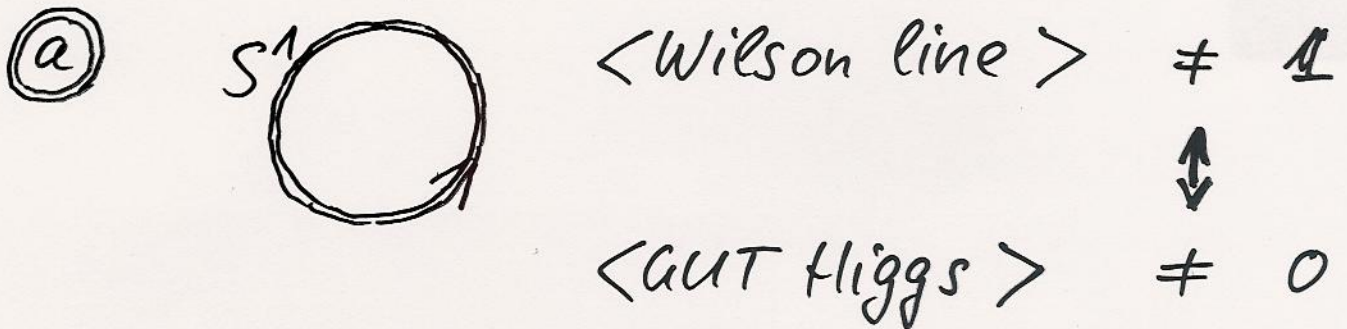 a S¹ <Wilson line> ≠ 1
↕
<GUT Higgs> ≠ 0